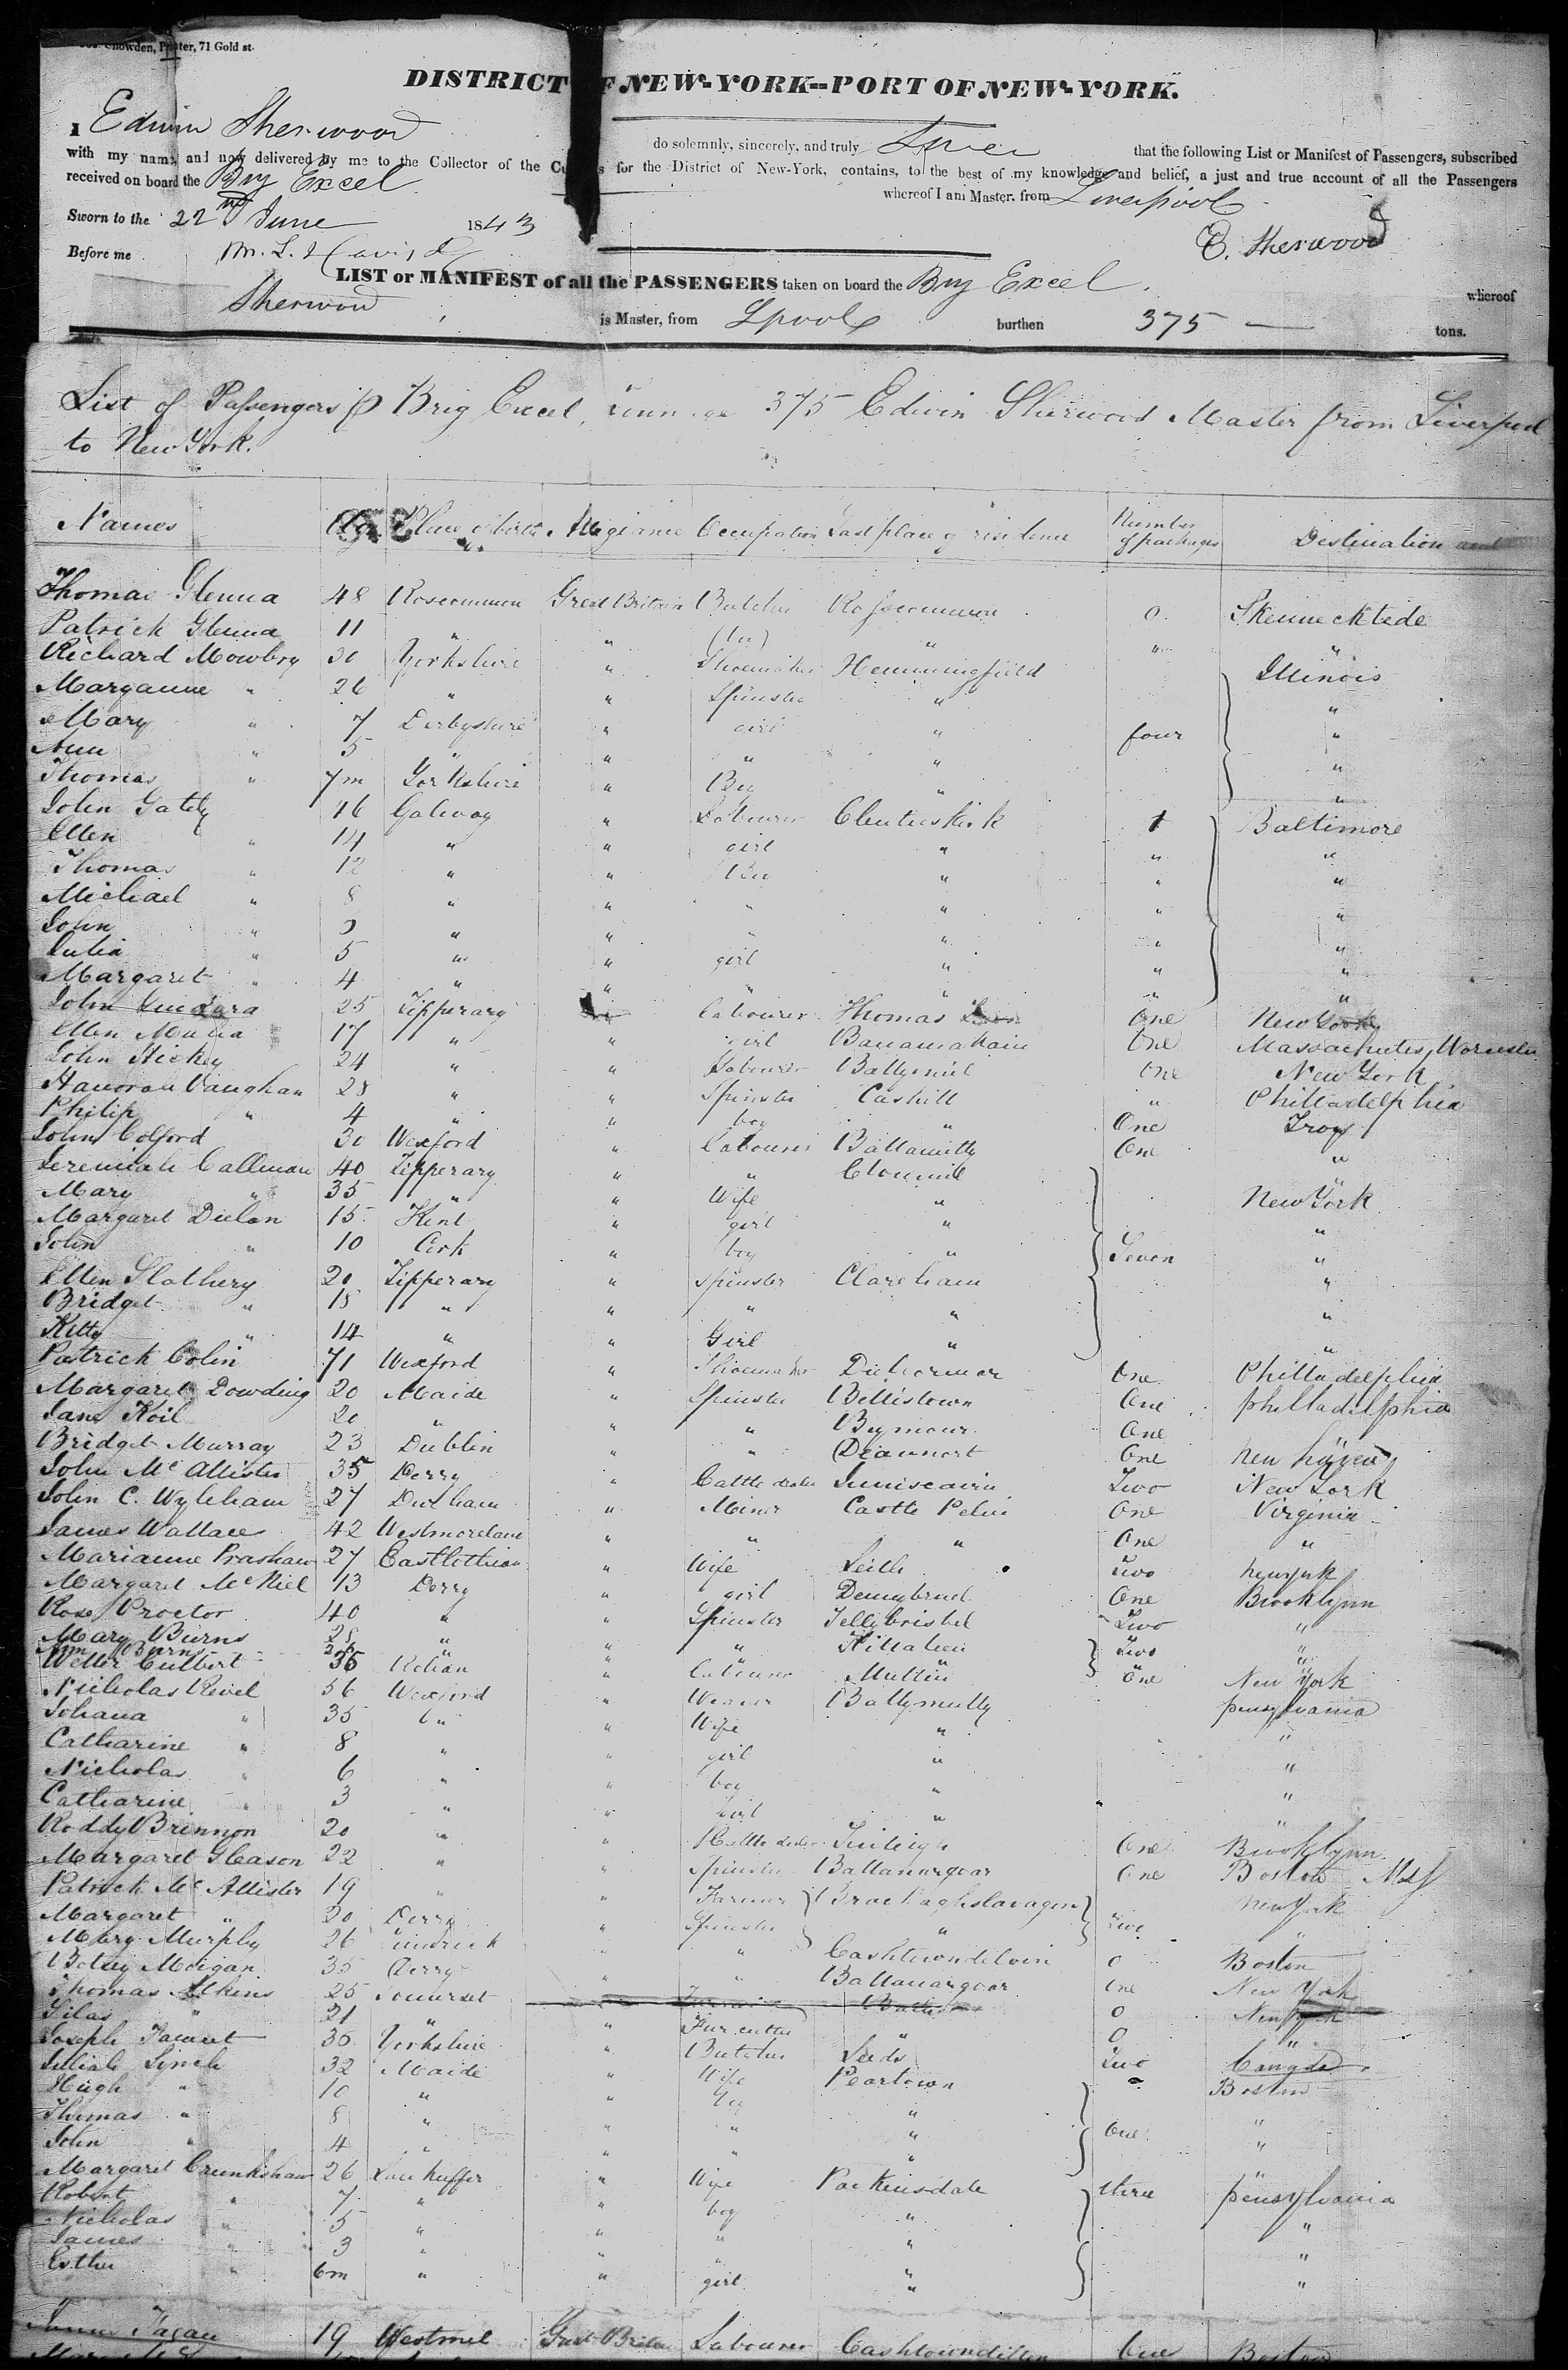 Chowden, Printer, 71 Gold st.
DISTRICT OF NEW-YORK--PORT OF NEW-YORK.
I Edwin Sherwood do solemnly, sincerely, and truly Swear that the following List or Manifest of Passengers, subscribed
with my name, and now delivered by me to the Collector of the Customs for the District of New-York, contains, to the best of my knowledge and belief, a just and true account of all the Passengers
received on board the Brig Excel whereof I am Master, from Liverpool
Sworn to the 22nd June 1843
E. Sherwood
Before me
LIST or MANIFEST of all the PASSENGERS taken on board the Brig Excel whereof
Sherwood is Master, from Lpool burthen 375 tons.
List of Passengers p Brig Excel, 375 Edwin Sherwood Master from Liverpool
to New York.
Names Age Place of birth Allegiance Occupation Last place of residence Number of packages Destination
Thomas Glenna 48 Roscommon Great Britain Roscommon 0 Skennecktede
Patrick Glenna 11 " " " " "
Richard Mowbry 30 Yorkshire " Shoemaker Hemmingfield Illinois
Marganne " 26 " " Spinster " "
Mary " 7 Derbyshire " girl " four "
Ann " 5 " " " " "
Thomas " 7m Yorkshire " Boy " "
John Gately 46 Galway " Labourer 1 Baltimore
Ellen " 14 " " girl " " "
Thomas " 12 " " Boy " " "
Michael " 8 " " " " " "
John " " " " " " "
Julia " 5 " " girl " " "
Margaret " 4 " " " " " "
John 25 Tipperary labourer Thomas One New York
Ellen 17 " " girl One Massachutes, Worcester
John Hickey 24 " " Labourer One New York
Hanorah Vaughan 28 " " Spinster Cashill " Philladelphia
Philip " 4 " " boy " One Troy
John Colford 30 Wexford " labourer One "
Jeremiah Callinan 40 Tipperary " " Clonmill "
Mary " 35 " " Wife " New York
Margaret Dulon 15 Kent " girl " "
John " 10 Cork " boy " Seven "
Ellen Slathery 20 Tipperary " Spinster Clareham "
Bridget " 18 " " " " "
Kitty " 14 " " Girl " "
Patrick Colin 71 Wexford " Shoemaker One Philladelphia
Margaret Dowding 20 Maide " Spinster Bellistown One philladelphia
Jane Koil 20 " " " One
Bridget Murray 23 Dublin " " One new haven
John Mc Allister 35 Derry " Cattle dealer Two New York
John C. Wyleham 27 Durham " Miner One Virginia
James Wallace 42 Westmoreland " " " One "
Marianne Prashaw 27 Eastlothian " Wife Leith Two newyork
Margaret McNiel 13 Derry " girl One Brooklynn
Rose Proctor 40 " " Spinster Two "
Mary Burns 28 " " " Two "
Ann Burns
Culbert 35 " labourer One New York
Nicholas Revel 56 Wexford " Weaver Ballymully pensylvania
Johana " 35 " Wife "
Catharine " 8 " " girl " "
Nicholas " 6 " " boy " "
Catharine " 3 " " girl " "
Roddy Brennon 20 " " Cattle dealer One Brooklynn
Margaret Gleason 22 " " Spinster Ballanargoar One Boston
Patrick Mc Allister 19 " " Farmer newyork
Margaret " 20 Derry " Spinster " "
Mary Murphy 26 Limerick " " 0 Boston
Betsey Moigan 35 Derry " " Ballanargoar one New York
Thomas Atkins 25 Somerset 0 Newyork
Silas " 21 " " Fur cutter " 0 "
Joseph 36 Yorkshire " Butcher Leeds Two
Lynch 32 Maide " Wife Peartown Boston
Hugh " 10 " " boy "
Thomas " 8 " " " " One "
John " 4 " " " " "
Margaret Crunkshaw 26 " Wife three pensylvania
Robert " 7 " " boy "
Nicholas " 5 " " " " "
James " 3 " " " " "
Esther " 6m " " girl " "
Fagan 19 Westmel Great Britain Labourer One Boston